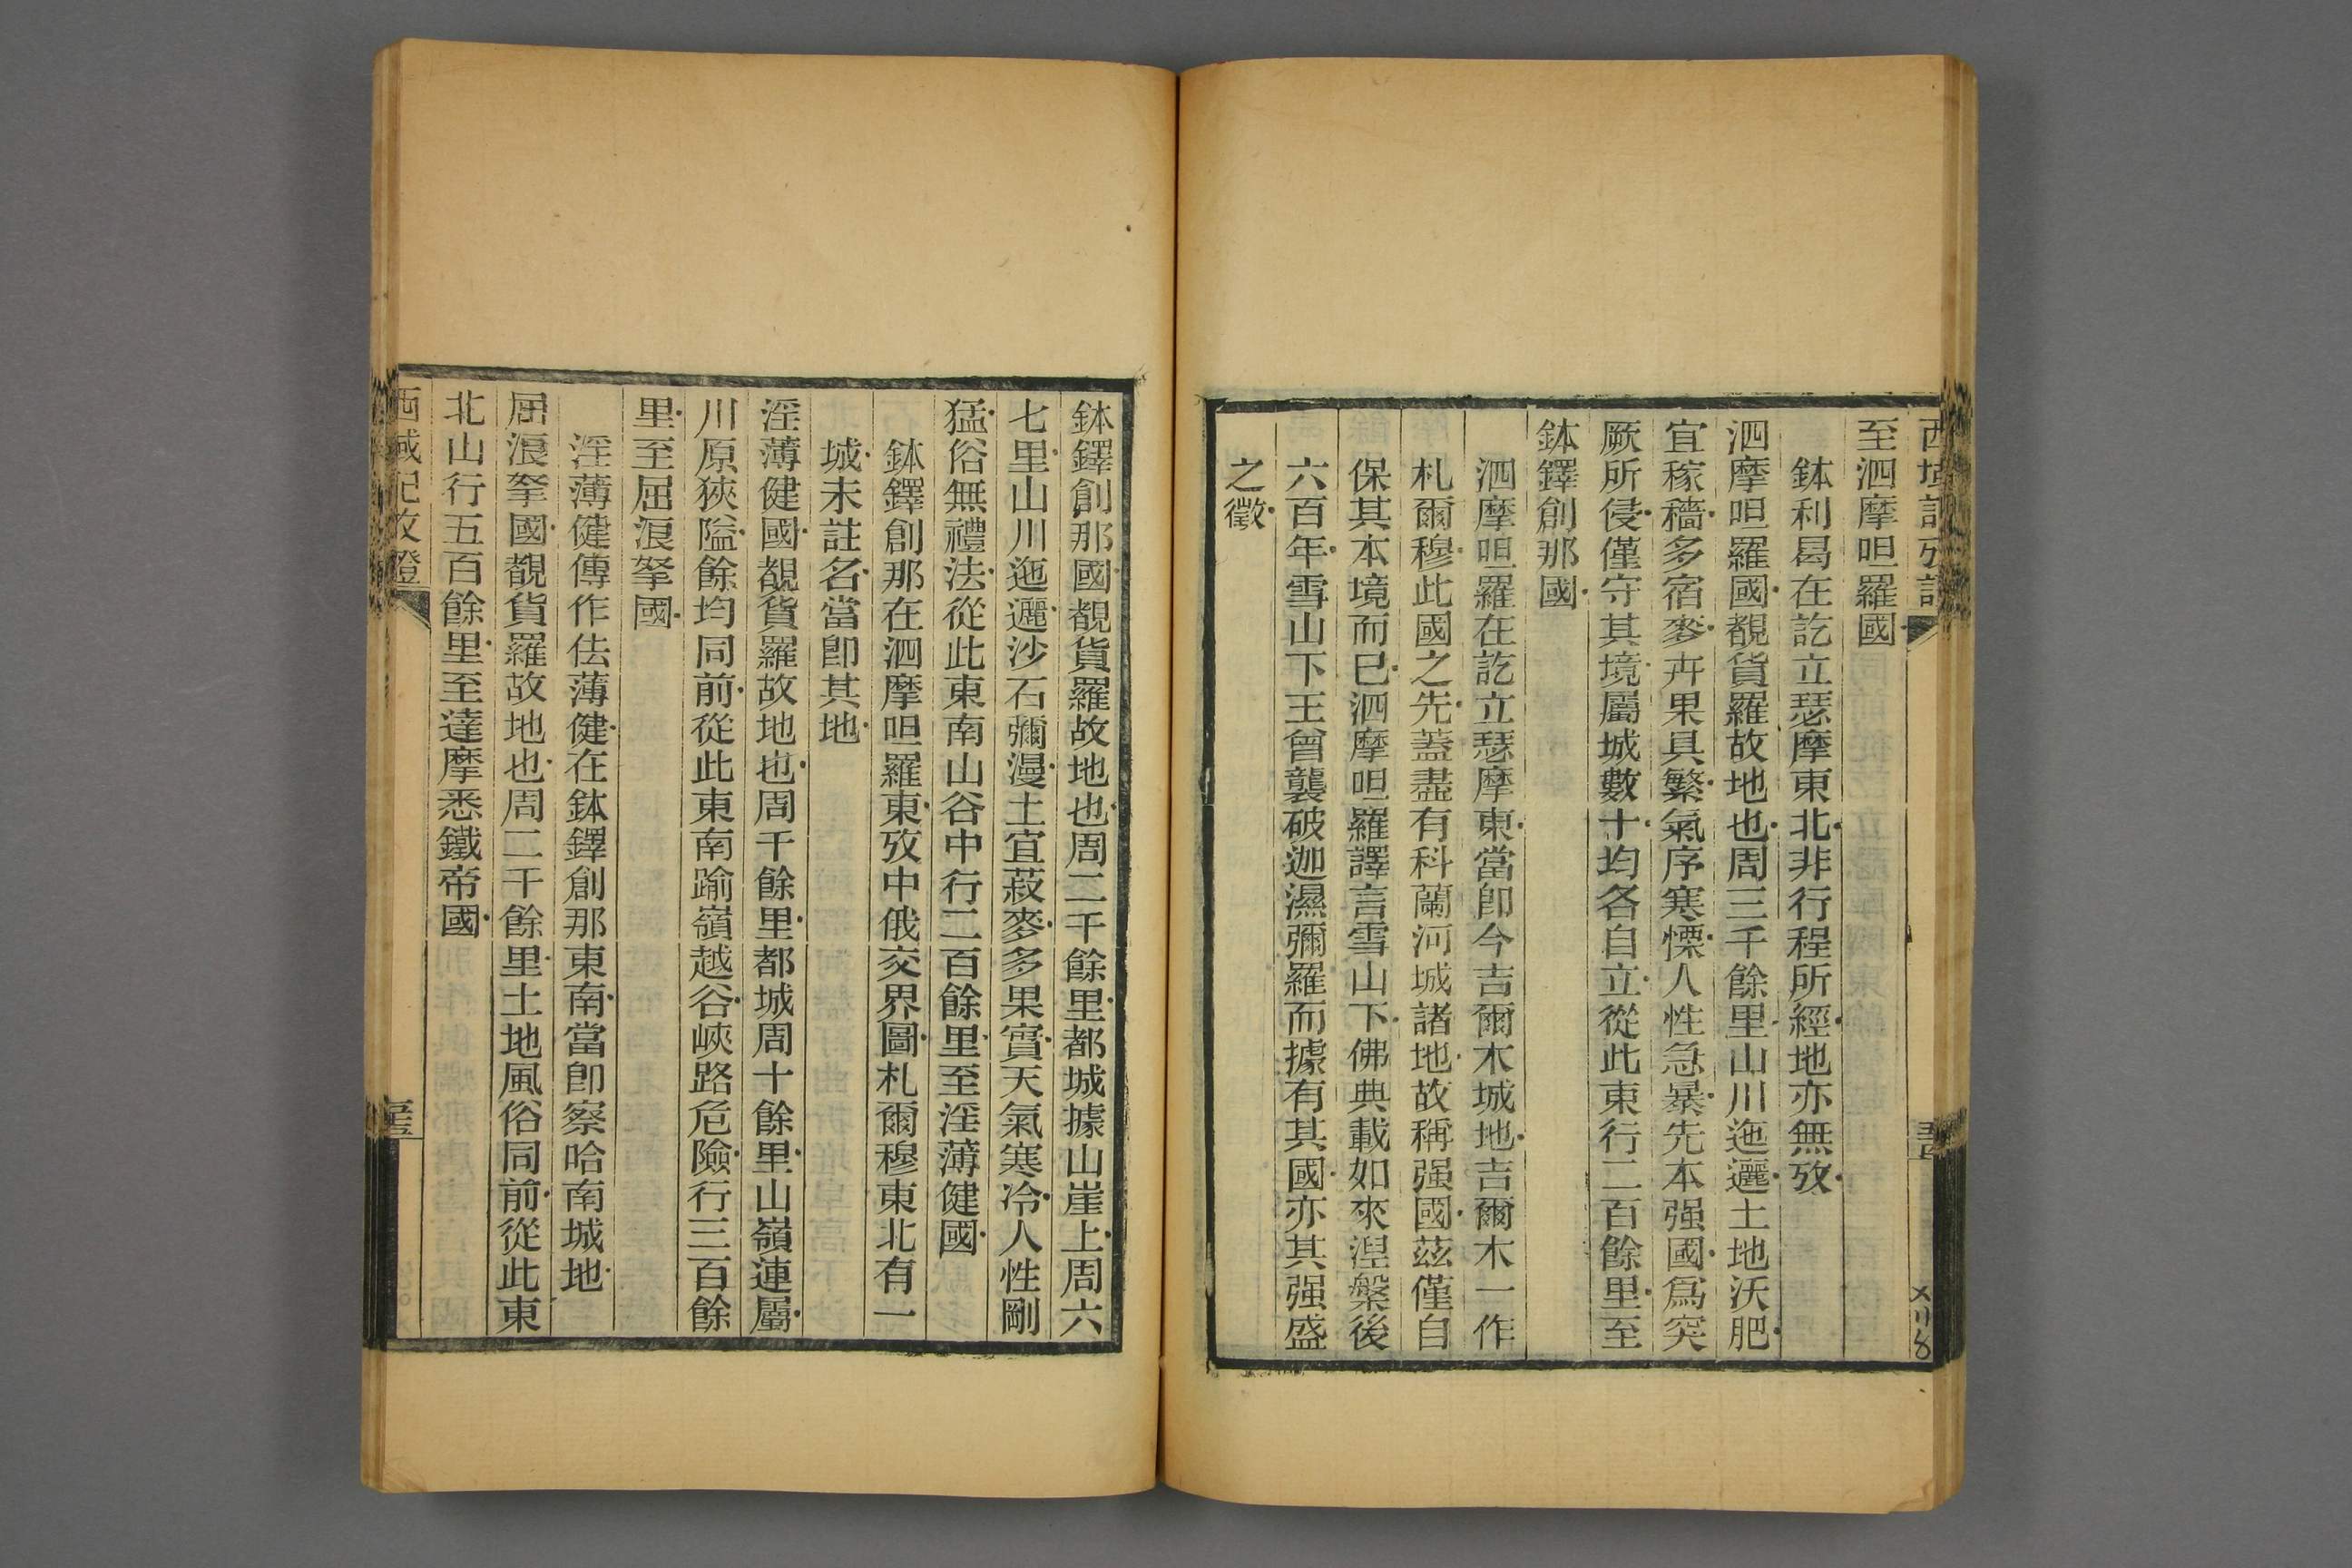 至泗摩呾羅國
鉢利曷在訖立瑟摩東北非行程所經地亦無攷
泗摩呾羅國覩貨羅故地也周三千餘里山川迤邐土地沃肥
宜稼穡多宿麥卉果具繁氣序寒慄人性急暴先本强國爲突
厥所侵僅守其境屬城數十均各自立從此東行二百餘里至
鉢鐸創那國
泗摩呾羅在訖立瑟摩東當卽今吉爾木城地吉爾木一作
札爾穆此國之先蓋盡有科蘭河城諸地故稱强國茲僅自
保其本境而已泗摩呾羅譯言雪山下佛典載如來湼槃後
六百年雪山下王曾襲破迦濕彌羅而據有其國亦其强盛
之徵
鉢鐸創那國覩貨羅故地也周二千餘里都城據山崖上周六
七里山川迤邐沙石彌漫土宜菽麥多果實天氣寒冷人性剛
猛俗無禮法從此東南山谷中行二百餘里至淫薄健國
鉢鐸創那在泗摩呾羅東攷中俄交界圖札爾穆東北有一
城未註名當卽其地
淫薄健國覩貨羅故地也周千餘里都城周十餘里山嶺連屬
川原狹隘餘均同前從此東南踰嶺越谷峽路危險行三百餘
里至屈浪拏國
淫薄健傳作佉薄健在鉢鐸創那東南南當卽察哈南城地
屈浪拏國覩貨羅故地也周二千餘里土地風俗同前從此東
北山行五百餘里至達摩悉鐵帝國
西域記攷證